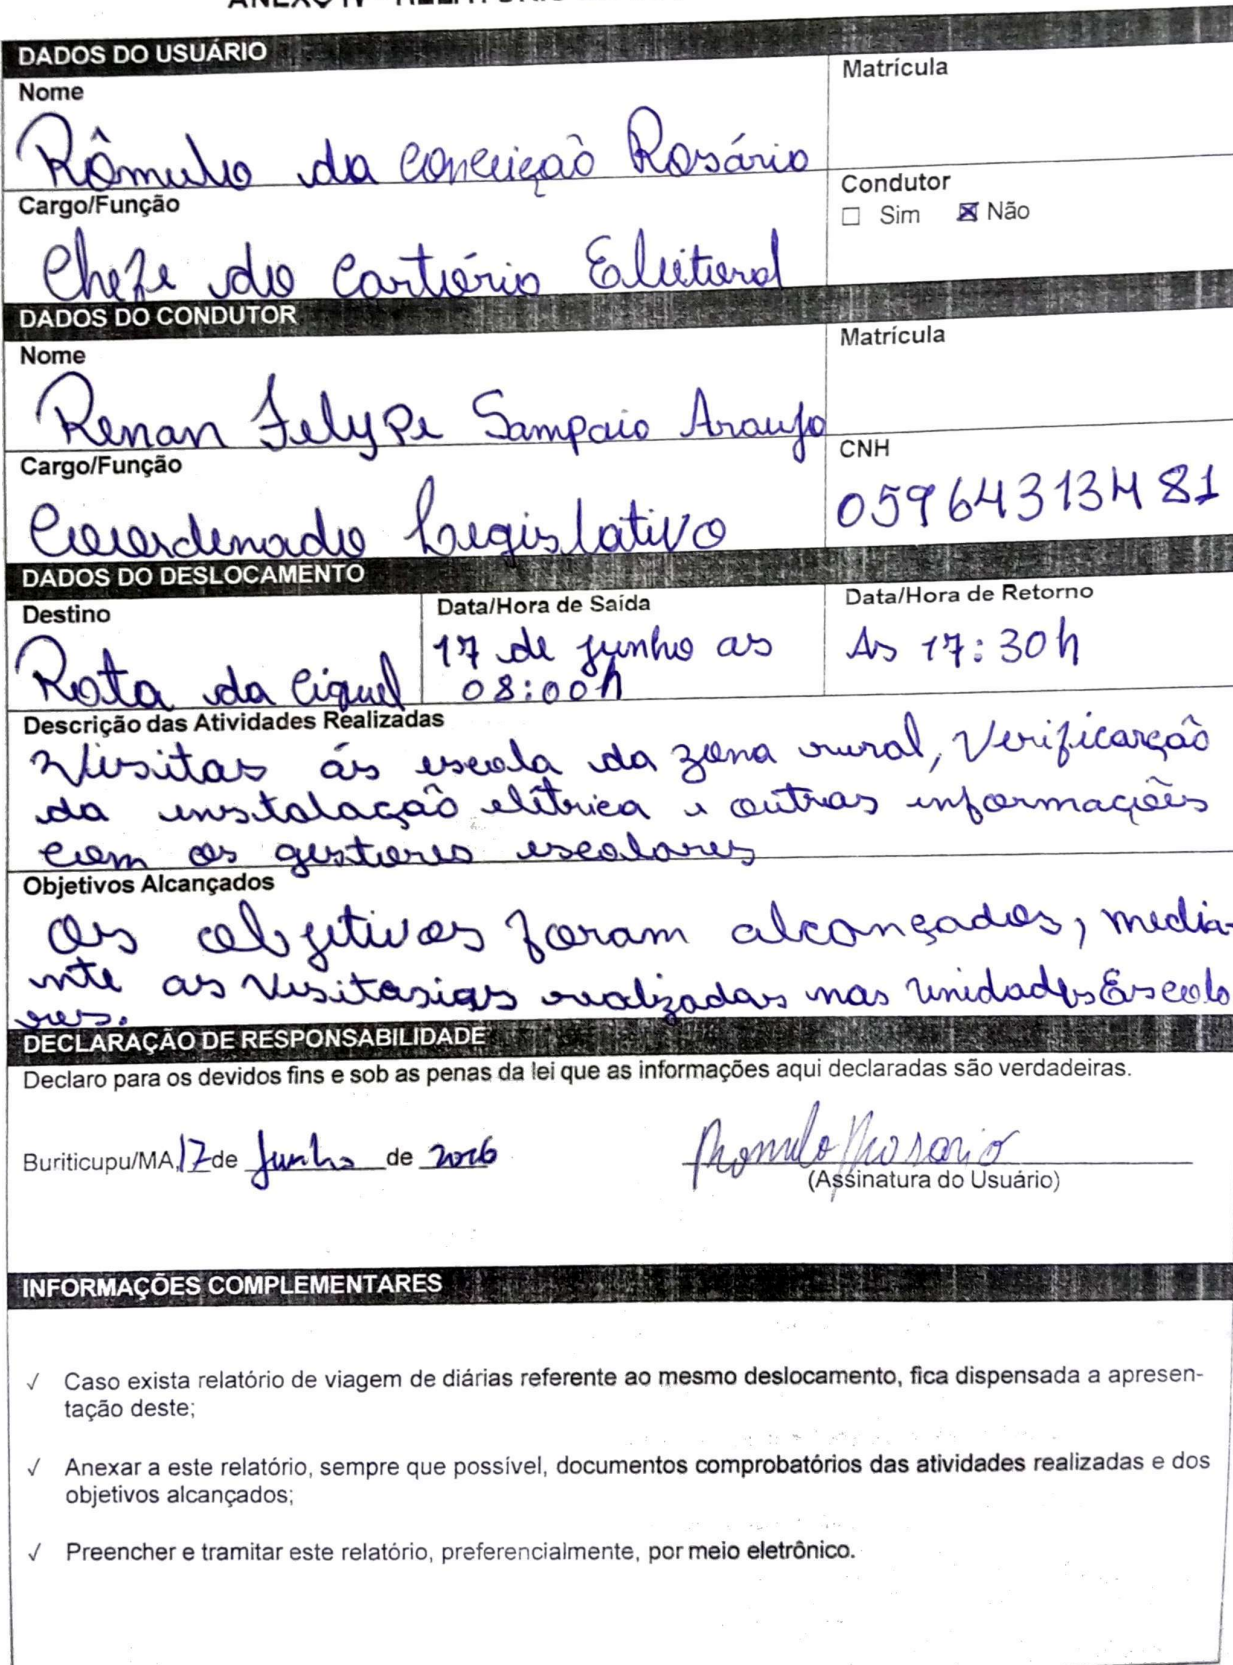 ANEXO IV - RELATÓRIO
DADOS DO USUÁRIO
Nome
Rômulo da Conceição Rosário
Matrícula
Cargo/Função
Chefe do Cartório Eleitoral
Condutor
☐ Sim ☒ Não
DADOS DO CONDUTOR
Nome
Renan Felype Sampaio Araujo
Matrícula
Cargo/Função
Coordenado Legislativo
CNH
05964313481
DADOS DO DESLOCAMENTO
Destino
Rota da Ciquel
Data/Hora de Saída
17 de junho as
08:00h
Data/Hora de Retorno
As 17:30h
Descrição das Atividades Realizadas
Visitas ás escola da zona rural, Verificarção
da instalação elítrica e outras informações
com os gestores escolares
Objetivos Alcançados
Os objetivos foram alcançados, media-
nte as realizadas nas Unidades Escola
res.
DECLARAÇÃO DE RESPONSABILIDADE
Declaro para os devidos fins e sob as penas da lei que as informações aqui declaradas são verdadeiras.
Buriticupu/MA, 17 de Junho de 2026
Romulo Rosario
(Assinatura do Usuário)
INFORMAÇÕES COMPLEMENTARES
√ Caso exista relatório de viagem de diárias referente ao mesmo deslocamento, fica dispensada a apresen-
tação deste;
√ Anexar a este relatório, sempre que possível, documentos comprobatórios das atividades realizadas e dos
objetivos alcançados;
√ Preencher e tramitar este relatório, preferencialmente, por meio eletrônico.